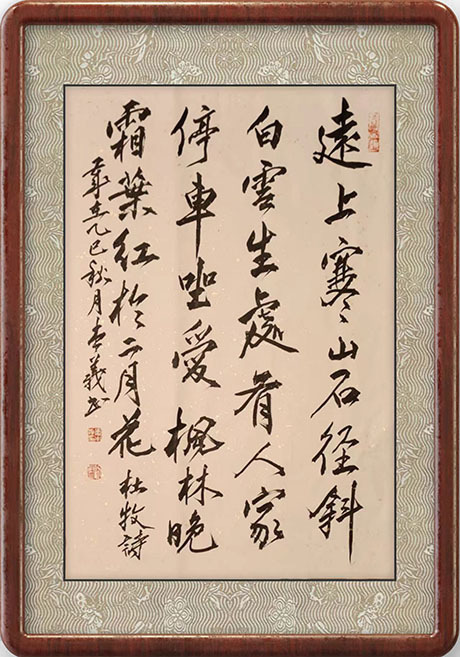 遠上寒山石径斜
白雲生處有人家
停車坐愛楓林晚
霜葉红於二月花 杜牧詩
歲在乙巳秋月義书